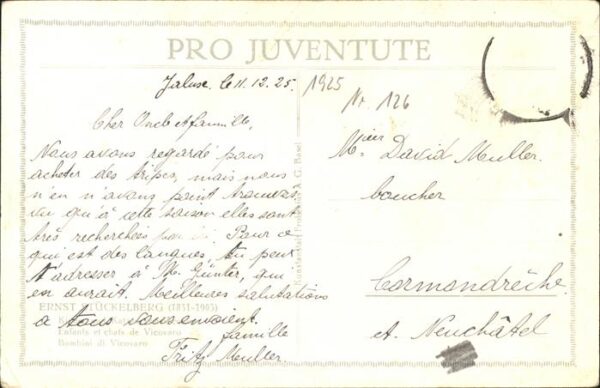 PRO JUVENTUTE
Jaluse, le 11.12.25.
1925
Nr. 126
Cher Oncle et famille,
Nous avons regardé pour
acheter des tripes, mais nous
n'en n'avons point trouvées,
vu qu'à cette saison elles sont
très recherchées Pour ce
qui est des langues, tu peux
t'adresser à M. Günter, qui
en aurait. Meilleures salutations
à tous
famille
Fritz Muller
Msier David Muller.
boucher
Cormondrèche.
ct. Neuchâtel
ERNST STÜCKELBERG (1831-1903)
Enfants et chats de Vicovaro
Bambini di Vicovaro
A. G. Basel